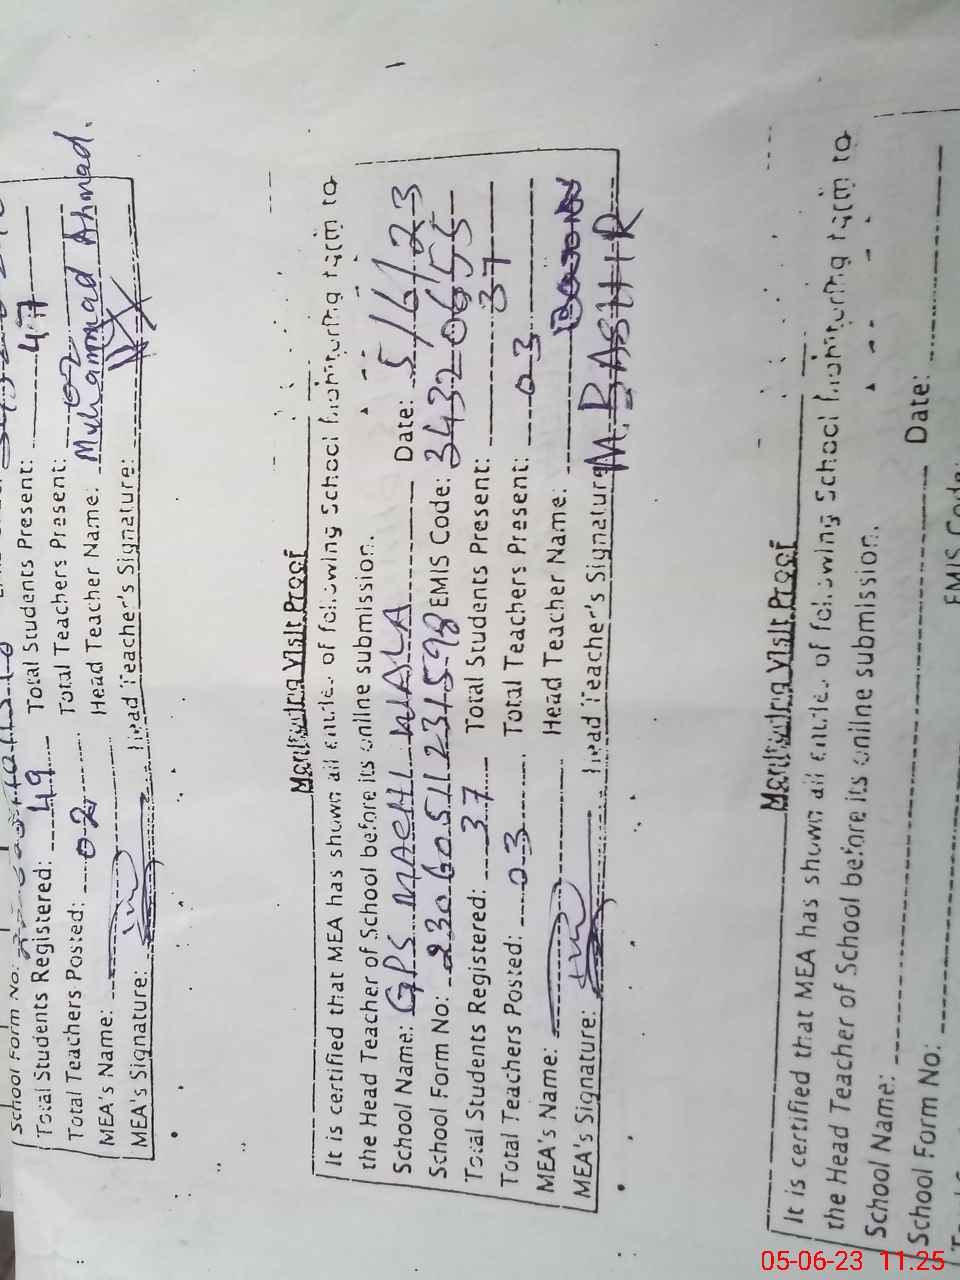 School Form No:
Total Students Registered: 49 Total Students Present: 47
Total Teachers Posted: 02 Total Teachers Present: 02
MEA's Name: Head Teacher Name: Muhammad Ahmad.
MEA's Signature: Head Teacher's Signature:
Monitoring Visit Proof
It is certified that MEA has shown all entries of following School Monitoring form to
the Head Teacher of School before its online submission.
School Name: GPS MACHI WALA Date: 5/6/23
School Form No: 23060511231598 EMIS Code: 34320655
Total Students Registered: 37 Total Students Present: 37
Total Teachers Posted: 03 Total Teachers Present: 03
MEA's Name: Head Teacher Name:
MEA's Signature: Head Teache's Signature: M. BASHIR
Monitoring Visit Proof
It is certified that MEA has shown all entries of following School Monitoring form to
the Head Teacher of School before its online submission.
School Name: Date:
School Form No: EMIS Code:
05-06-23 11.25